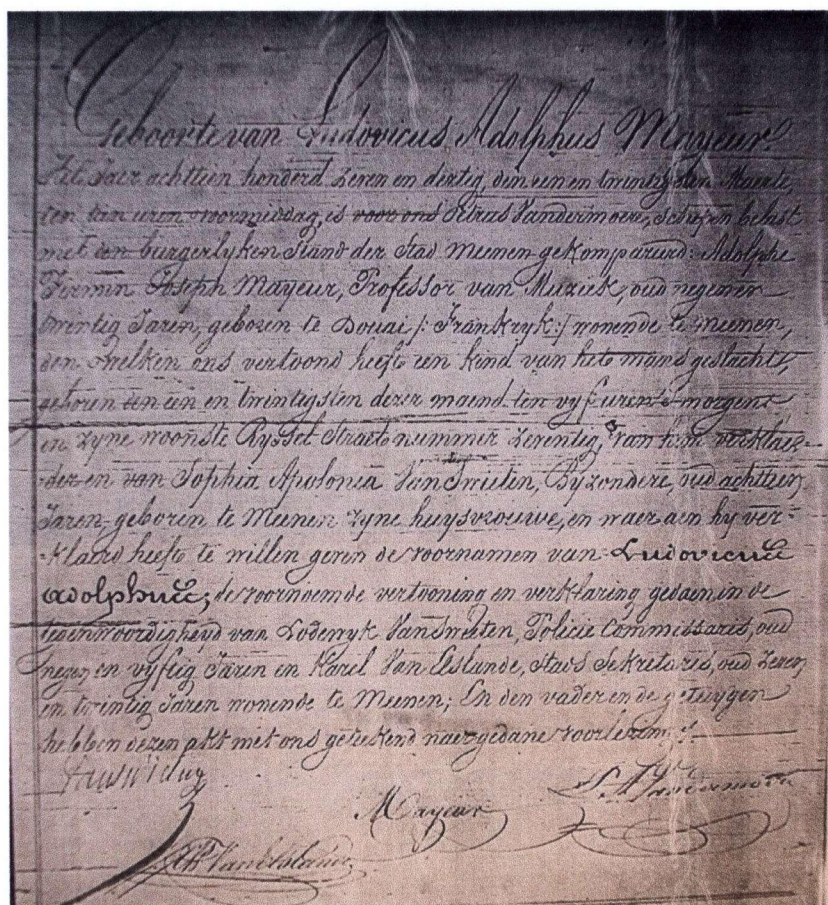 Geboorte van Ludovicus Adolphus Mayeur
Het jaer achttien honderd zeven en dertig, den een en twintigsten Maerte,
ten tien uren voormiddag, is voor ons Petrus Vandermoere, schepen belast
met den burgerlyken stand der stad Meenen gekompareerd: Adolphe
Firmin Joseph Mayeur, Professor van Muziek, oud negen en
twintig Jaren, geboren te Douai /: Frankryk :/ wonende te meenen,
den welken ons vertoond heeft een kind van het mans geslacht,
geboren den een en twintigsten dezer maend ten vyf uren 's morgens
in zyne woonste Ryssel Straet nummer zeventig, van hem verklaer-
der en van Sophia Apolonia Vanswieten, Byzondere, oud achttien
Jaren geboren te Meenen zyne huysvrouwe, en waer aen hy ver-
klaerd heeft te willen geven de voornamen van Ludovicus
adolphus; de voornoemde vertooning en verklaring gedaen in de
tegenwoordigheyd van Lodewyk Vanswieten, Policie Commissaris, oud
negen en vyftig Jaren en Karel Van Eslande, stads Sekretaris, oud zeven
en twintig Jaren wonende te Meenen; En den vader en de getuygen
hebben dezen akt met ons geteekend naer gedane voorlezing
Mayeur
Vandermoere
VanEslande